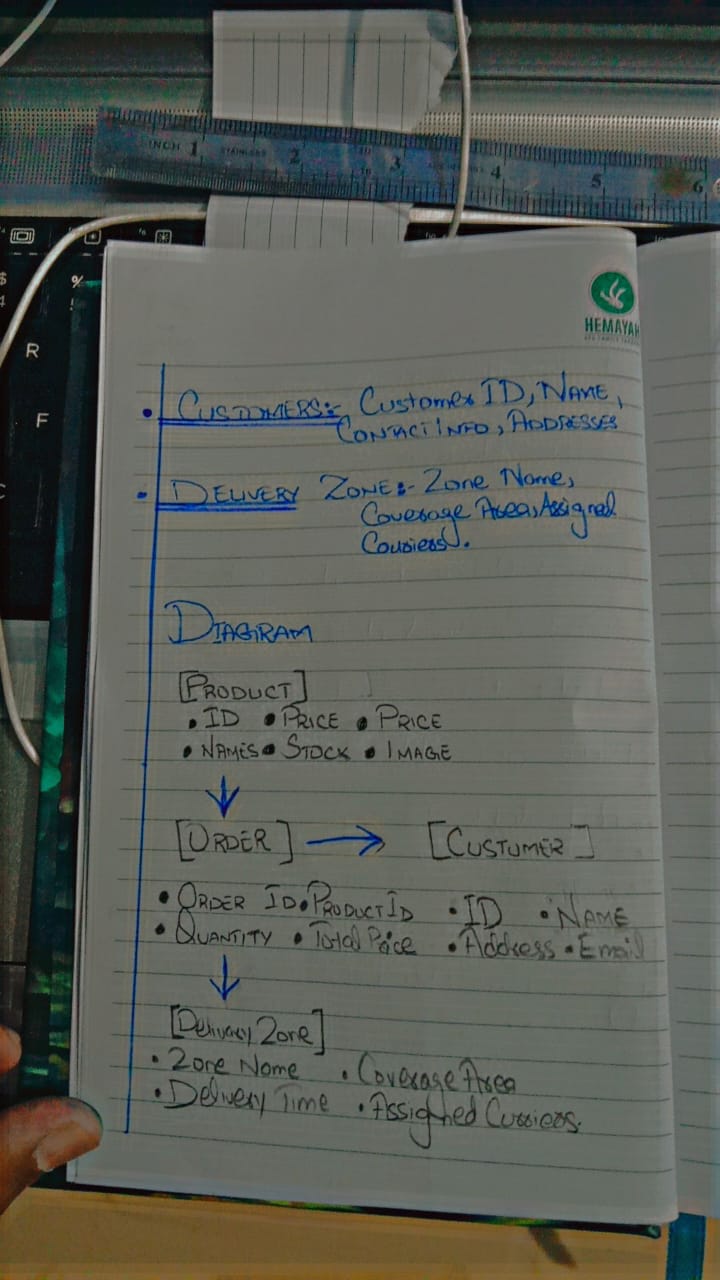 INCH 1 STAINLESS 2 3 4 5 6
R
F
HEMAYAH
• CUSTOMERS:- Customer ID, NAME,
CONTACT INFO, ADDRESSES
• DELIVERY ZONE:- Zone Name,
Coverage Area, Assigned
Couriers.
DIAGRAM
[PRODUCT]
• ID • PRICE • PRICE
• NAMES • STOCK • IMAGE
↓
[ORDER] → [CUSTUMER]
• ORDER ID • PRODUCT ID • ID • NAME
• QUANTITY • Total Price • Address • Email
↓
[Delivary Zone]
• Zone Name • Coverage Area
• Delivery Time • Assighed Curriers.